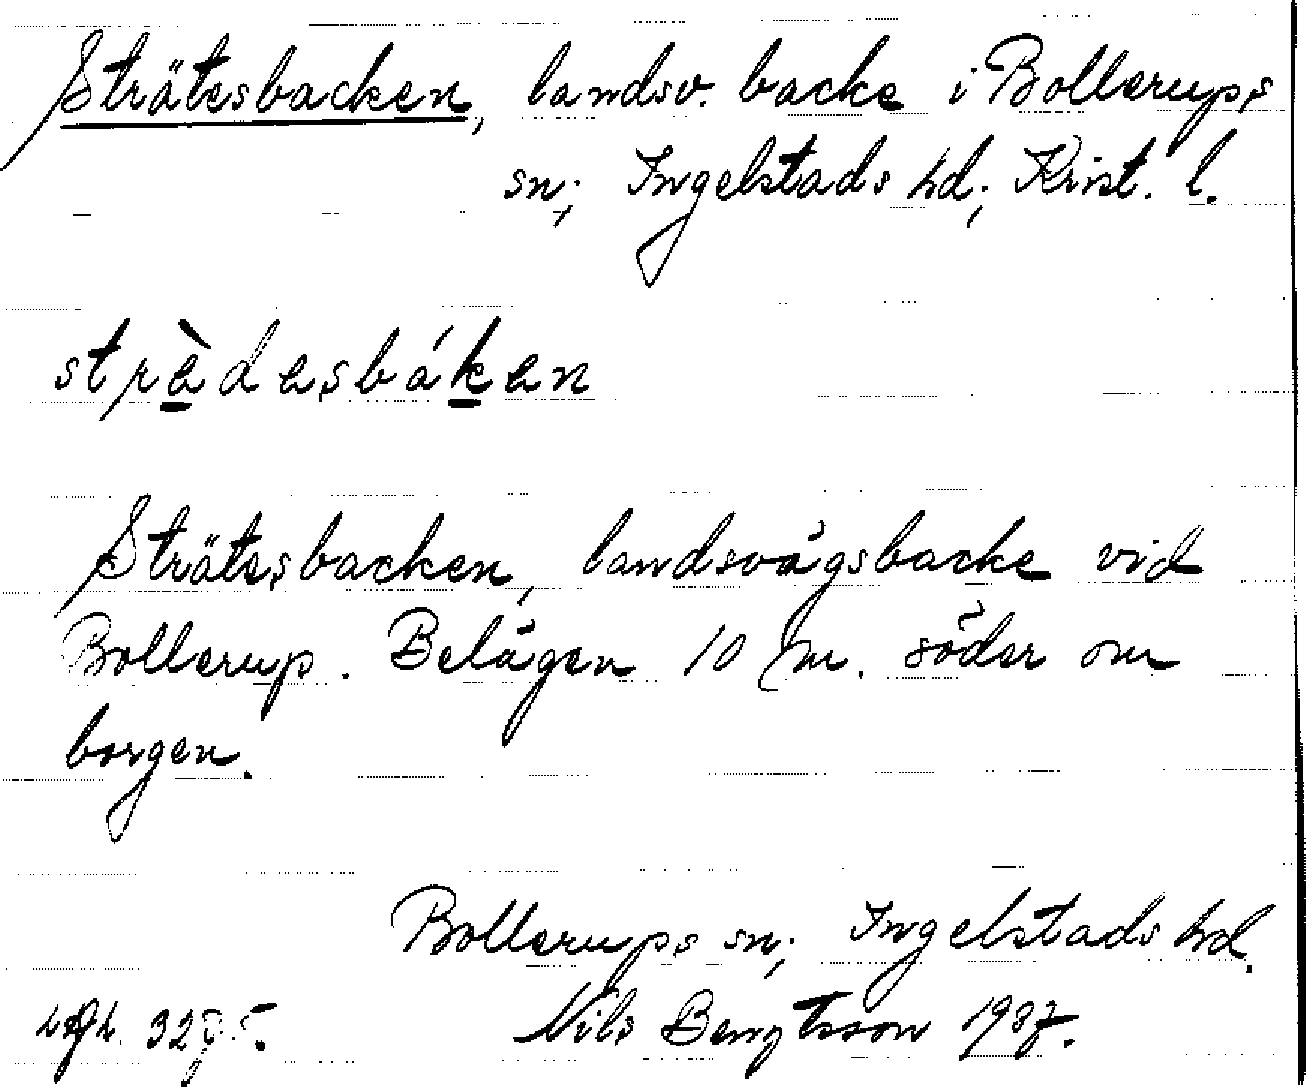 Strätesbacken, landsv. backe i Bollerups
sn; Ingelstads hd; Krist. l.
strèdesbáken
Strätesbacken, landsvägsbacke vid
Bollerup. Belägen 10 m. söder om
borgen.
Bollerups sn; Ingelstads hd.
Nils Bengtsson 1937.